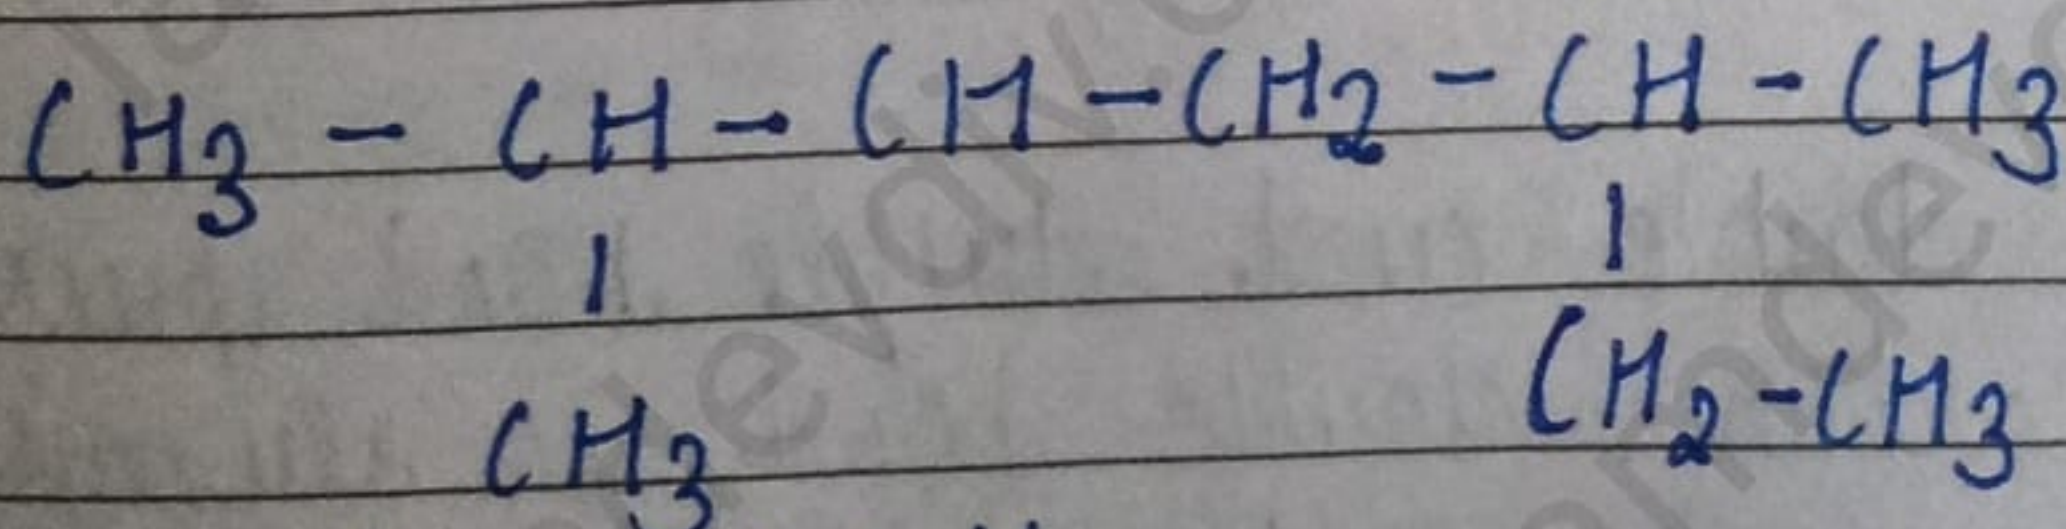 CH3 - CH - CH - CH2 - CH - CH3
| |
CH3 CH2 - CH3